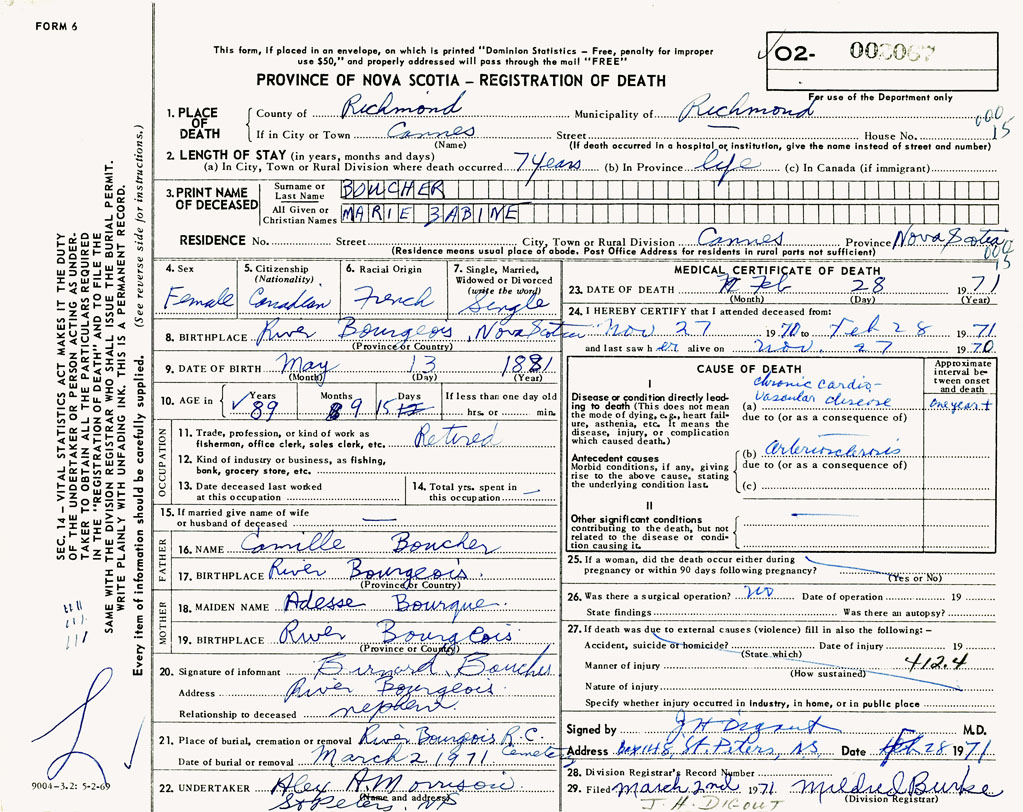 FORM 6
This form, if placed in an envelope, on which is printed "Dominion Statistics – Free, penalty for improper
use $50," and properly addressed will pass through the mail "FREE"
PROVINCE OF NOVA SCOTIA – REGISTRATION OF DEATH
✓ O2- 002067
For use of the Department only
1. PLACE OF DEATH
County of Richmond Municipality of Richmond 000
If in City or Town Cannes Street — House No. 15
(Name) (If death occurred in a hospital or institution, give the name instead of street and number)
2. LENGTH OF STAY (in years, months and days)
(a) In City, Town or Rural Division where death occurred 7 years (b) In Province life (c) In Canada (if immigrant)
3. PRINT NAME OF DECEASED
Surname or Last Name BOUCHER
All Given or Christian Names MARIE ZABINE
RESIDENCE No. Street City, Town or Rural Division Cannes Province Nova Scotia
(Residence means usual place of abode. Post Office Address for residents in rural parts not sufficient)
4. Sex Female
5. Citizenship (Nationality) Canadian
6. Racial Origin French
7. Single, Married, Widowed or Divorced (write the word) Single
8. BIRTHPLACE River Bourgeois, Nova Scotia
(Province or Country)
9. DATE OF BIRTH May 13 1881
(Month) (Day) (Year)
10. AGE in ✓ Years 89 Months 9 Days 15 If less than one day old hrs. or min.
OCCUPATION
11. Trade, profession, or kind of work as fisherman, office clerk, sales clerk, etc. Retired
12. Kind of industry or business, as fishing, bank, grocery store, etc.
13. Date deceased last worked at this occupation
14. Total yrs. spent in this occupation —
15. If married give name of wife or husband of deceased —
FATHER
16. NAME Camille Boucher
17. BIRTHPLACE River Bourgeois.
(Province or Country)
MOTHER
18. MAIDEN NAME Adesse Bourque.
19. BIRTHPLACE River Bourgeois
(Province or Country)
20. Signature of informant Birnard Boucher
Address River Bourgeois.
Relationship to deceased nephew
21. Place of burial, cremation or removal River Bourgois R.C. Cemetery
Date of burial or removal March 2 1971
22. UNDERTAKER Alex A. Morrison
St Peters, NS
(Name and address)
MEDICAL CERTIFICATE OF DEATH
23. DATE OF DEATH Feb 28 1971
(Month) (Day) (Year)
24. I HEREBY CERTIFY that I attended deceased from:
Nov 27 1970 to Feb 28 1971
and last saw her alive on Nov. 27 1970
CAUSE OF DEATH
Approximate interval between onset and death
I
Disease or condition directly leading to death (This does not mean the mode of dying, e.g., heart failure, asthenia, etc. It means the disease, injury, or complication which caused death.)
(a) chronic cardio-vascular disease one year +
due to (or as a consequence of)
Antecedent causes
Morbid conditions, if any, giving rise to the above cause, stating the underlying condition last.
(b) Arteriosclerosis
due to (or as a consequence of)
(c)
II
Other significant conditions
contributing to the death, but not related to the disease or condition causing it.
25. If a woman, did the death occur either during pregnancy or within 90 days following pregnancy?
(Yes or No)
26. Was there a surgical operation? no Date of operation 19
State findings Was there an autopsy?
27. If death was due to external causes (violence) fill in also the following: –
Accident, suicide or homicide? Date of injury 19
(State which)
Manner of injury 412.4
(How sustained)
Nature of injury
Specify whether injury occurred in industry, in home, or in public place
Signed by J H Digout M.D.
Address Box 148, St. Peters, NS Date Feb 28 1971
28. Division Registrar's Record Number
29. Filed March 2nd 1971 Mildred Burke
(Division Registrar)
J. H. DIGOUT
SEC. 14 – VITAL STATISTICS ACT MAKES IT THE DUTY
OF THE UNDERTAKER OR PERSON ACTING AS UNDER-
TAKER TO OBTAIN ALL THE PARTICULARS REQUIRED
IN THE "REGISTRATION OF DEATH" AND TO FILE THE
SAME WITH THE DIVISION REGISTRAR WHO SHALL ISSUE THE BURIAL PERMIT.
WRITE PLAINLY WITH UNFADING INK. THIS IS A PERMANENT RECORD.
Every item of information should be carefully supplied. (See reverse side for instructions.)
9004–3.2: 5-2-69